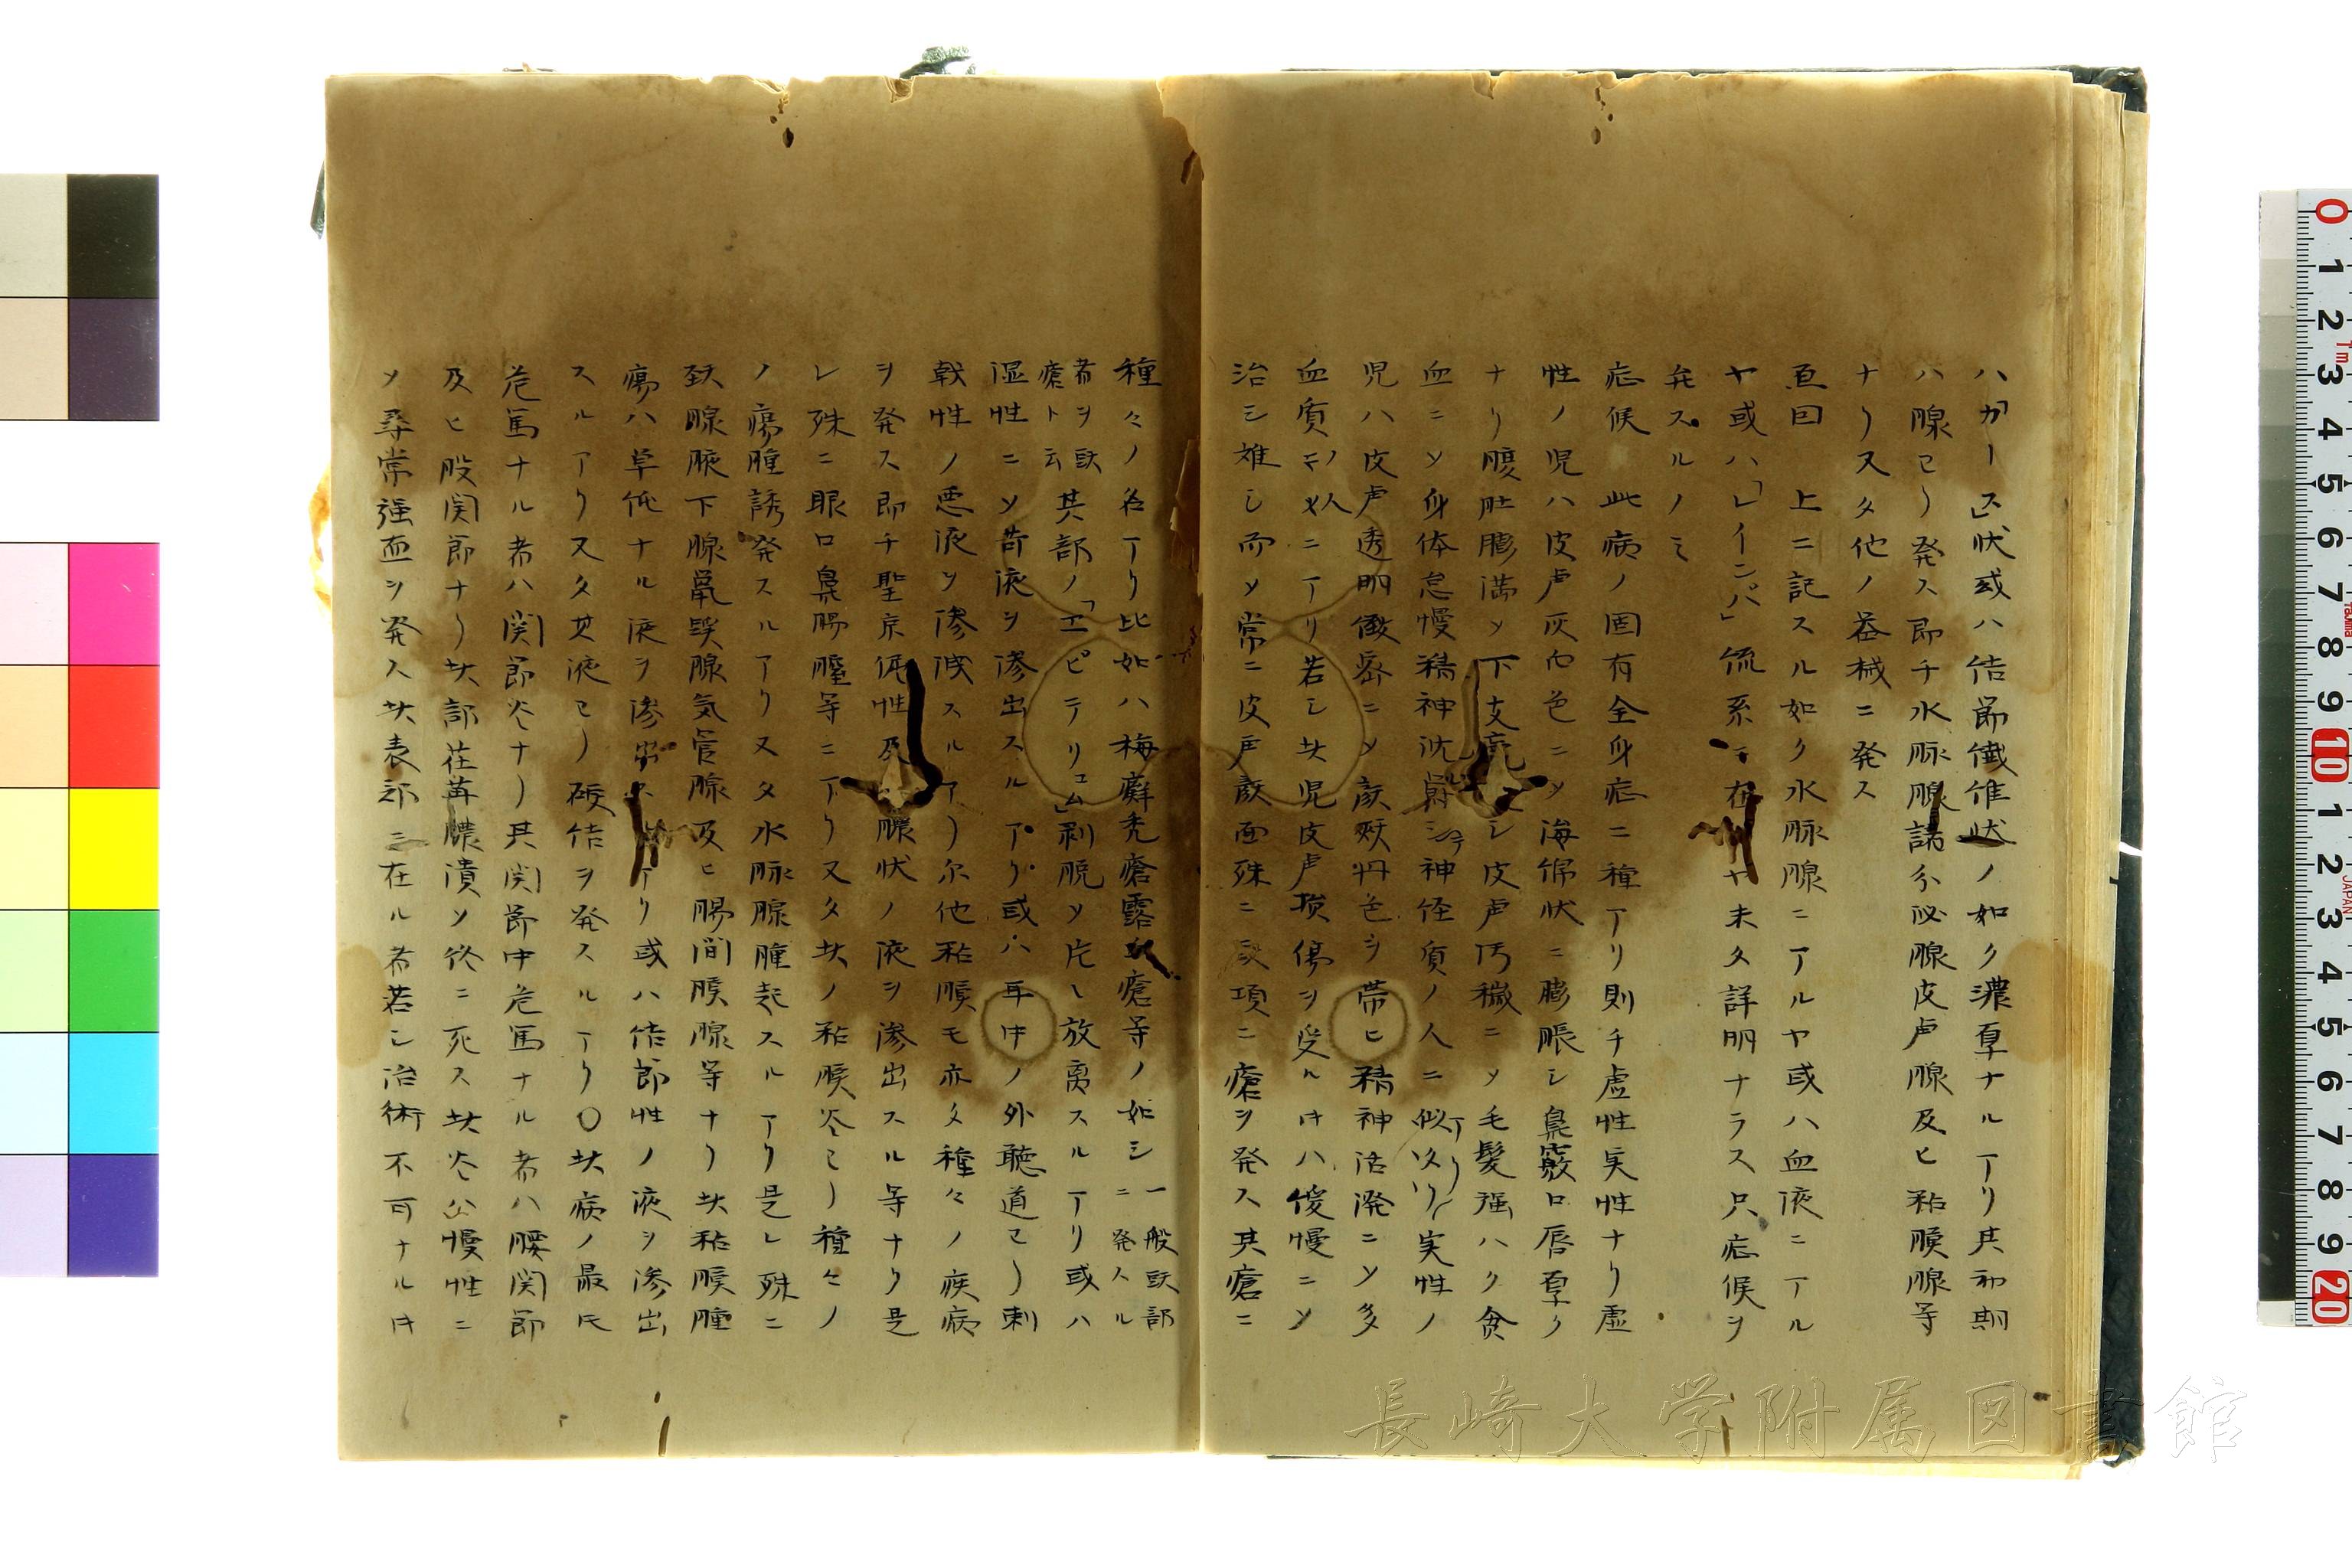 ハ「カース」状或ハ结節繊維状ノ如ク濃厚ナルアリ其初期
ハ腺ヨリ発ス即チ水脉腺諸分泌腺皮膚腺及ヒ粘膜腺等
ナリ又タ他ノ器械ニ発ス
原因 上ニ記スル如ク水脉腺ニアルヤ或ハ血液ニアル
ヤ或ハ「レインパ」流系ニ在ヤ未タ詳明ナラス只症候ヲ
弁スルノミ
症候 此病ノ固有全身症二種アリ則チ虚性実性ナリ虚
性ノ児ハ皮膚灰白色ニソ海綿状ニ膨脹シ鼻竅口唇厚ク
ナリ腹肚膨満ソ下支シ皮膚汚穢ニソ毛髪强ハク貪
血ニソ身体怠慢精神沈鬱シテ神侄質ノ人ニ似タリ実性ノ
児ハ皮膚透明緻密ニソ顔頬丹色ヲ帯ヒ精神活溌ニソ多
血質ノ人ニアリ若シ此児皮膚損傷ヲ受ルキハ緩慢ニソ
治シ难シ而ソ常ニ皮膚顔面殊ニ頭項ニ瘡ヲ発ス其瘡ニ
種々ノ名アリ比如ハ梅癬禿瘡露血瘡等ノ如シ一般頭部ニ発スル
者ヲ頭瘡ト云其部ノ「エピテリュム」剥脱ソ片々放离スルアリ或ハ
湿性ニソ苛液ヲ滲出スルアリ或ハ耳中ノ外聴道ヨリ刺
戟性ノ悪液ヲ滲洩スルアリ尓他粘膜モ亦タ種々ノ疾病
ヲ発ス即チ聖京侭性及膿状ノ液ヲ滲出スル等ナリ是
レ殊ニ眼口鼻腸膣等ニアリ又タ此ノ粘膜炎ヨリ種々ノ
ノ瘍腫誘発スルアリ又タ水脉腺腫起スルアリ是レ殊ニ
頚腺腋下腺鼠蹊腺気管腺及ヒ腸間膜腺等ナリ此粘膜腫
瘍ハ卓侭ナル液ヲ滲出スルアリ或ハ结節性ノ液ヲ滲出
スルアリ又タ其液ヨリ硬结ヲ発スルアリ〇此病ノ最氏
危篤ナル者ハ関節炎ナリ其関節中危篤ナル者ハ腰関節
及ヒ股関節ナリ此部荏苒膿潰ソ終ニ死ス此炎必慢性ニ
ソ尋常强壷ヲ発ス此表部ニ在ル者若シ治術不可ナルキ
長崎大学附属図書館